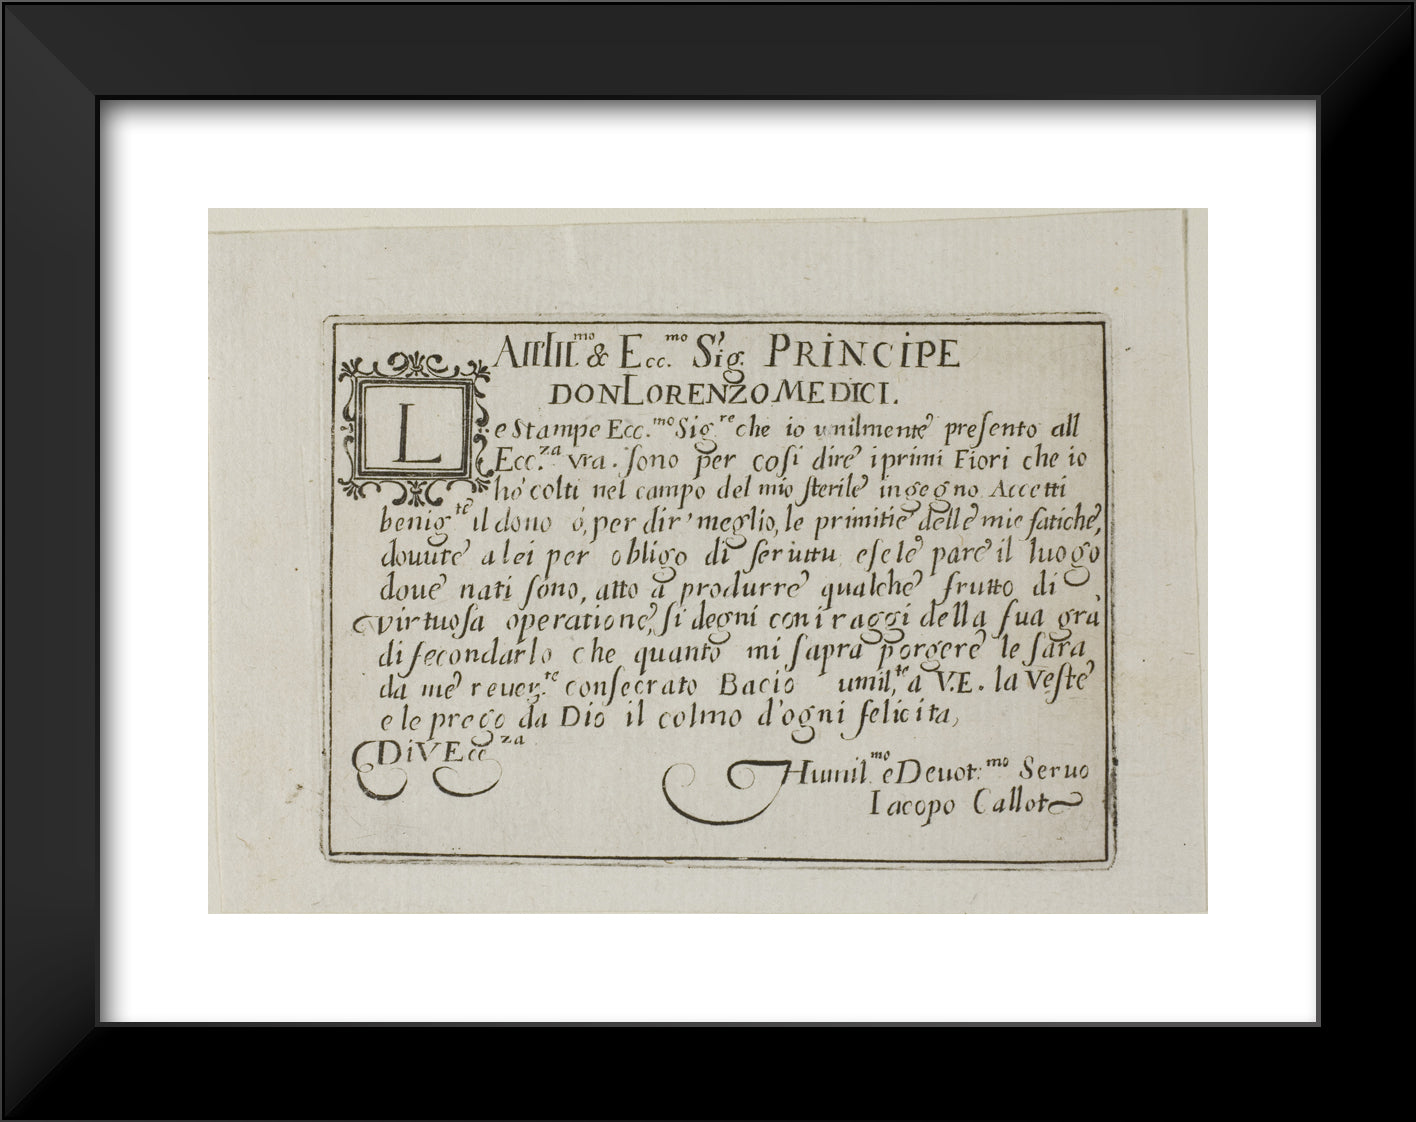 All'Ill.mo & Ecc.mo Sig. PRINCIPE
DON LORENZO MEDICI.
Le Stampe Ecc.mo Sig.re che io umilmente presento all
Ecc.za vra. sono per cosi dire i primi Fiori che io
hò colti nel campo del mio sterile ingegno Accetti
benig.te il dono ó, per dir' meglio, le primitie delle mie fatiche,
douute a lei per obligo di seruitu e se le pare il luogo
doue nati sono, atto à produrre qualche frutto di
virtuosa operatione, si degni con i raggi della sua grà
di fecondarlo che quanto mi saprà porgere le sara
da me reuer.te consecrato Bacio umil.te a V.E. la veste
e le prego da Dio il colmo d'ogni felicita,
Di V Ecc.za
Humil.mo e Deuot.mo Seruo
Iacopo Callot